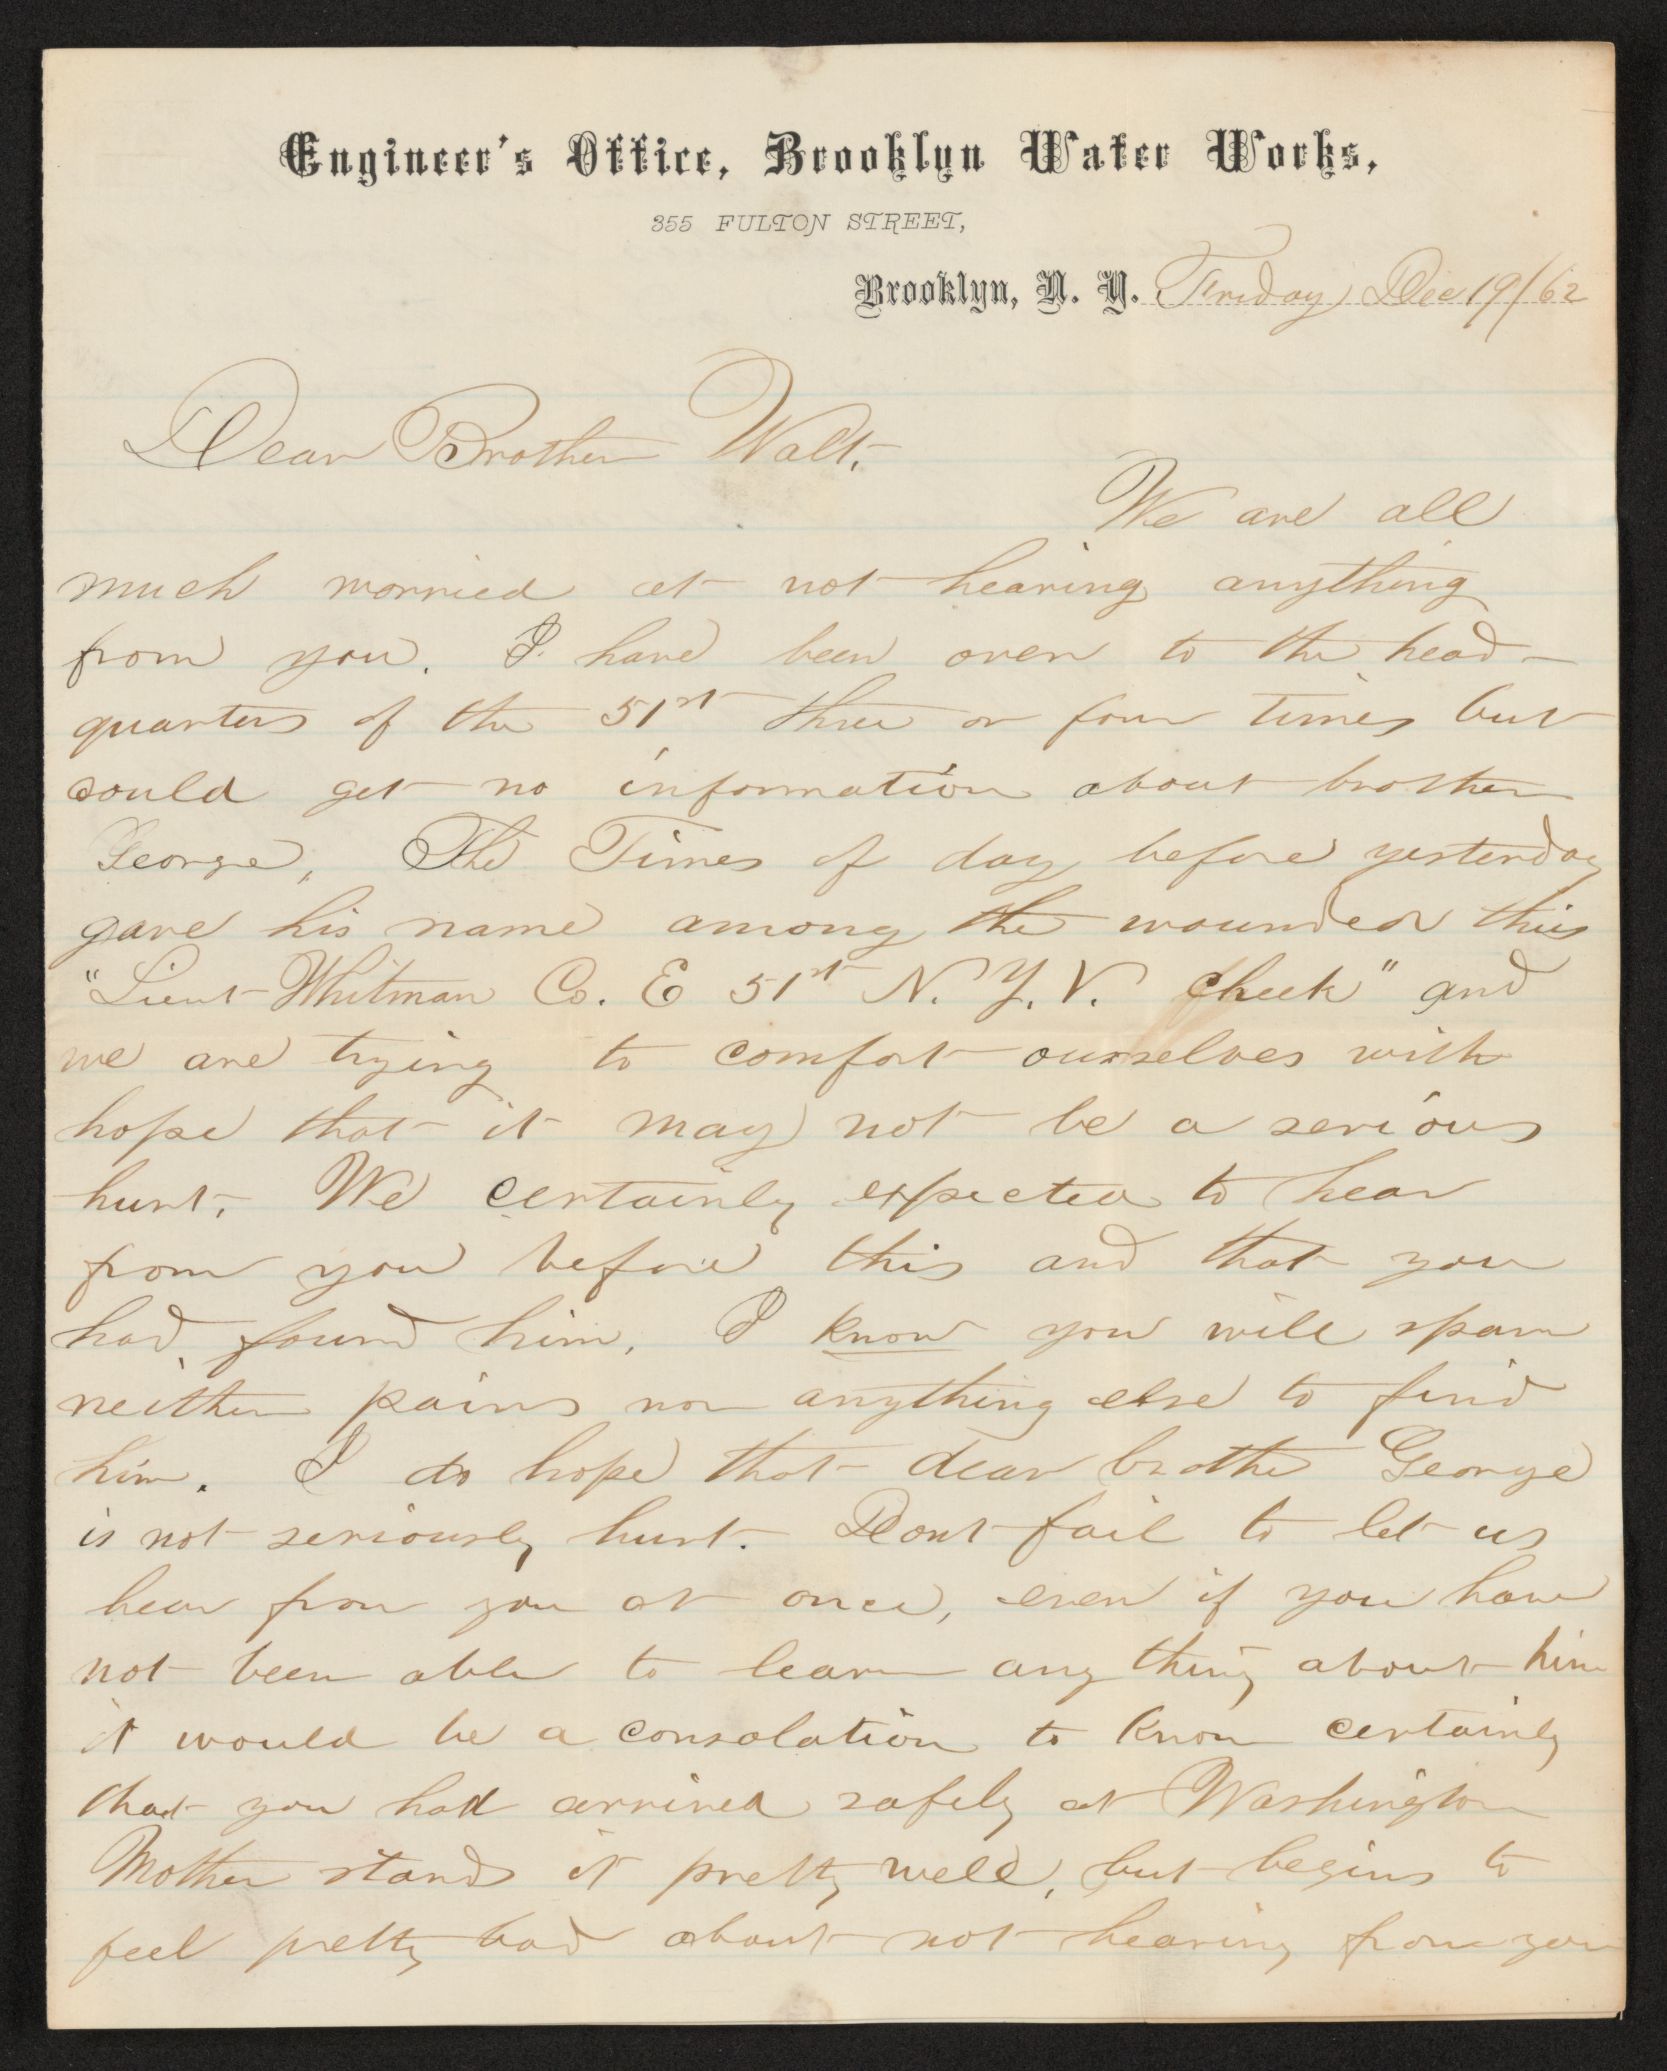 Engineer's Office, Brooklyn Water Works,
355 FULTON STREET,
Brooklyn, N. Y. Friday Dec 19/62
Dear Brother Walt,
We are all
much worried at not hearing anything
from you. I have been over to the head-
quarters of the 51st three or four times but
could get no information about brother
George, The Times of day before yesterday
gave his name among the wounded thus
"Lieut Whitman Co. E 51st N. Y. V. cheek" and
we are trying to comfort ourselves with
hope that it may not be a serious
hurt, We certainly expected to hear
from you before this and that you
had found him, I know you will spare
neither pains nor anything else to find
him. I do hope that dear brother George
is not seriously hurt. Dont fail to let us
hear from you at once, even if you have
not been able to learn any thing about him
it would be a consolation to know certainly
that you had arrived safely at Washington
Mother stands it pretty well, but begins to
feel pretty bad about not hearing from you